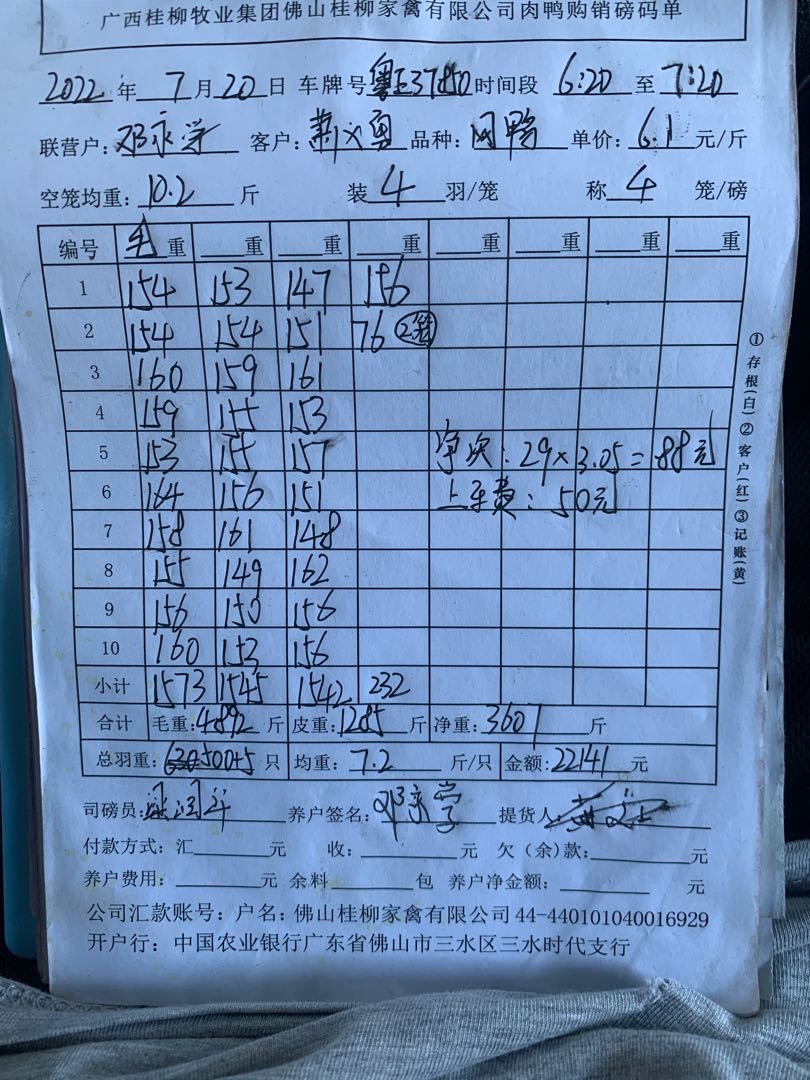 广西桂柳牧业集团佛山桂柳家禽有限公司肉鸭购销磅码单
2022 年 7 月 20 日 车牌号 粤E37850 时间段 6:20 至 7:20
联营户: 邓永学 客户: 萧义勇 品种: 网鸭 单价: 6.1 元/斤
空笼均重: 10.2 斤 装 4 羽/笼 称 4 笼/磅
编号 毛重 重 重 重 重 重 重 重
1 154 153 147 156
2 154 154 151 76 2笼
3 160 159 161
4 159 155 153
5 153 155 157 字次: 29×3.05=88元
6 164 156 151 上车费: 50元
7 158 161 148
8 155 149 162
9 156 150 156
10 160 153 156
小计 1573 1545 1542 232
合计 毛重: 4892 斤 皮重: 1285 斤 净重: 3607 斤
总羽重: 500+5 只 均重: 7.2 斤/只 金额: 22141 元
司磅员: 养户签名: 邓永学 提货人:
付款方式: 汇 元 收: 元 欠(余)款: 元
养户费用: 元 余料 包 养户净金额: 元
公司汇款账号: 户名: 佛山桂柳家禽有限公司 44-440101040016929
开户行: 中国农业银行广东省佛山市三水区三水时代支行
①存根(白)②客户(红)③记账(黄)